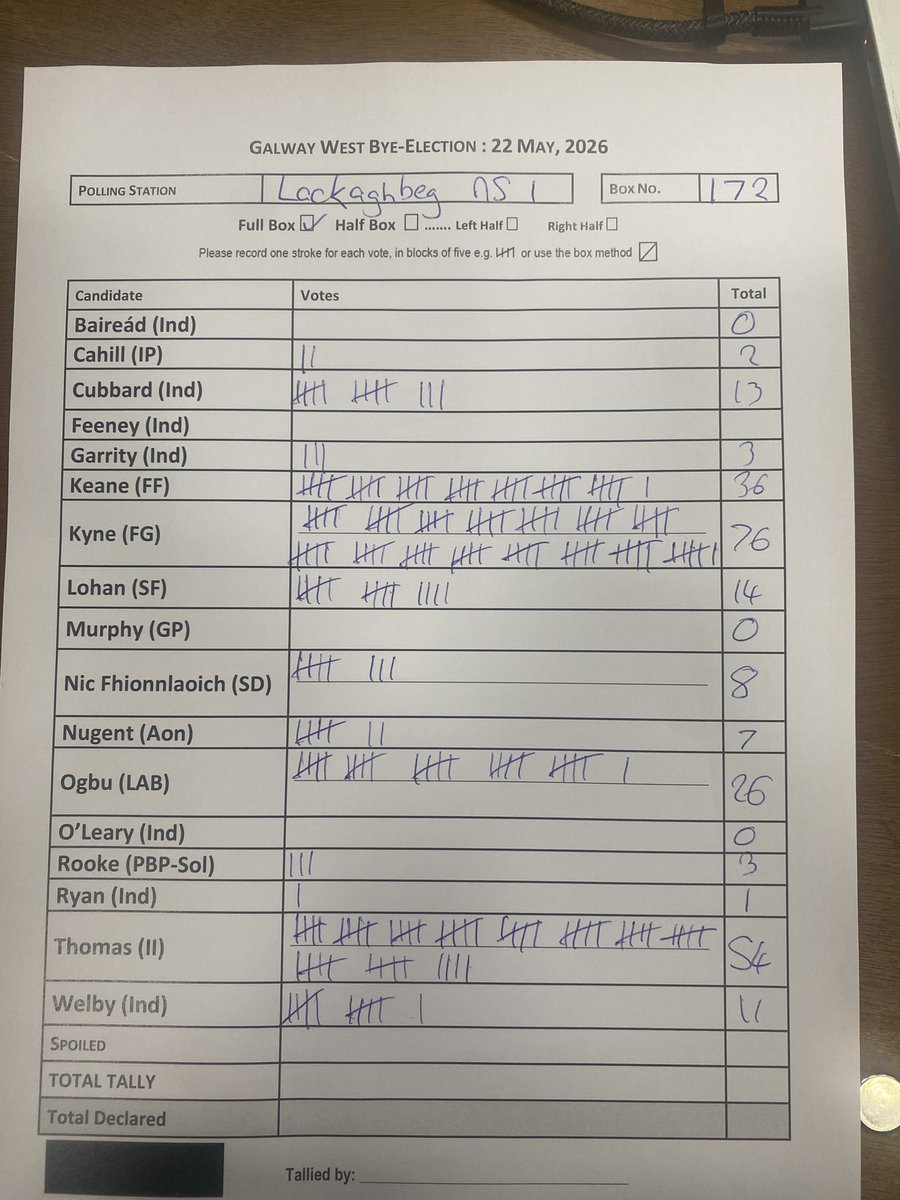 GALWAY WEST BYE-ELECTION : 22 MAY, 2026
POLLING STATION Lackaghbeg NS 1 BOX NO. 172
Full Box ☑ Half Box ☐ ....... Left Half ☐ Right Half ☐
Please record one stroke for each vote, in blocks of five e.g. 卌 or use the box method ⍁
Candidate Votes Total
Baireád (Ind) 0
Cahill (IP) || 2
Cubbard (Ind) 卌 卌 ||| 13
Feeney (Ind)
Garrity (Ind) ||| 3
Keane (FF) 卌 卌 卌 卌 卌 卌 卌 | 36
Kyne (FG) 卌 卌 卌 卌 卌 卌 卌 76
卌 卌 卌 卌 卌 卌 卌 卌 |
Lohan (SF) 卌 卌 |||| 14
Murphy (GP) 0
Nic Fhionnlaoich (SD) 卌 ||| 8
Nugent (Aon) 卌 || 7
Ogbu (LAB) 卌 卌 卌 卌 卌 | 26
O'Leary (Ind) 0
Rooke (PBP-Sol) ||| 3
Ryan (Ind) | 1
Thomas (II) 卌 卌 卌 卌 卌 卌 卌 卌 54
卌 卌 ||||
Welby (Ind) 卌 卌 | 11
SPOILED
TOTAL TALLY
Total Declared
Tallied by: